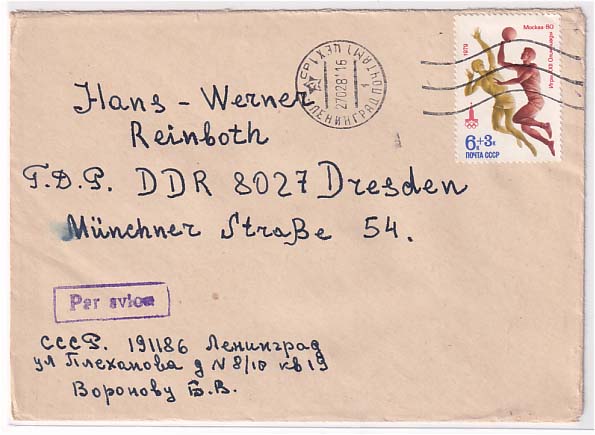 Москва 80
Игры XXII Олимпиады
1979
6к+3к
ПОЧТА СССР
СССР
ЛЕНИНГРАД ПОЧТАМТ
270281 16
Hans - Werner
Reinboth
Г.D.Р. DDR 8027 Dresden
Münchner Straße 54.
Par avion
СССР. 191186 Ленинград
ул Плеханова д N 8/10 кв 19
Воронову Б.В.